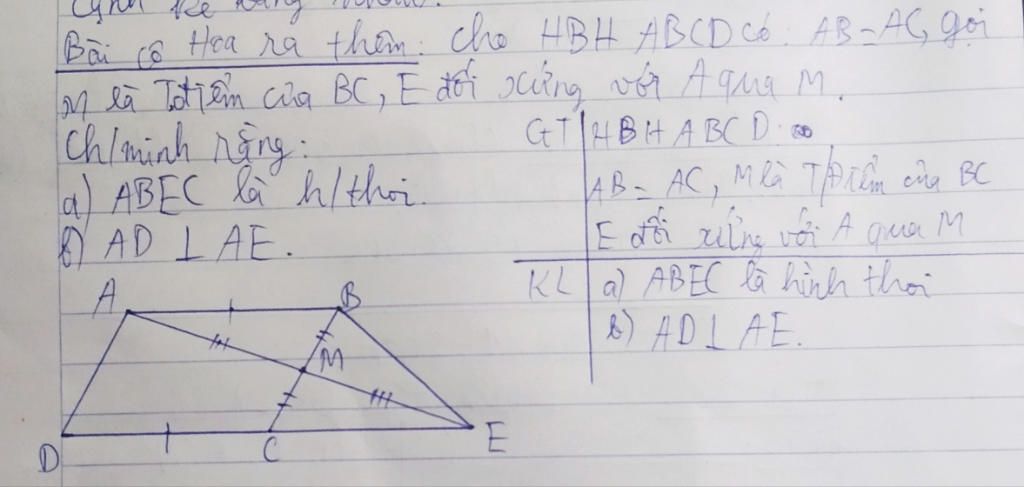 cạnh kề bằng nhau.
Bài cô Hoa ra thêm: Cho HBH ABCD có: AB = AC, gọi
M là T/điểm của BC, E đối xứng với A qua M.
Ch/minh rằng:
a) ABEC là h/thoi.
b) AD ⊥ AE.
GT HBH ABCD:
AB = AC, M là T/điểm của BC
E đối xứng với A qua M
KL a) ABEC là hình thoi
b) AD ⊥ AE.
A B
M
D C E